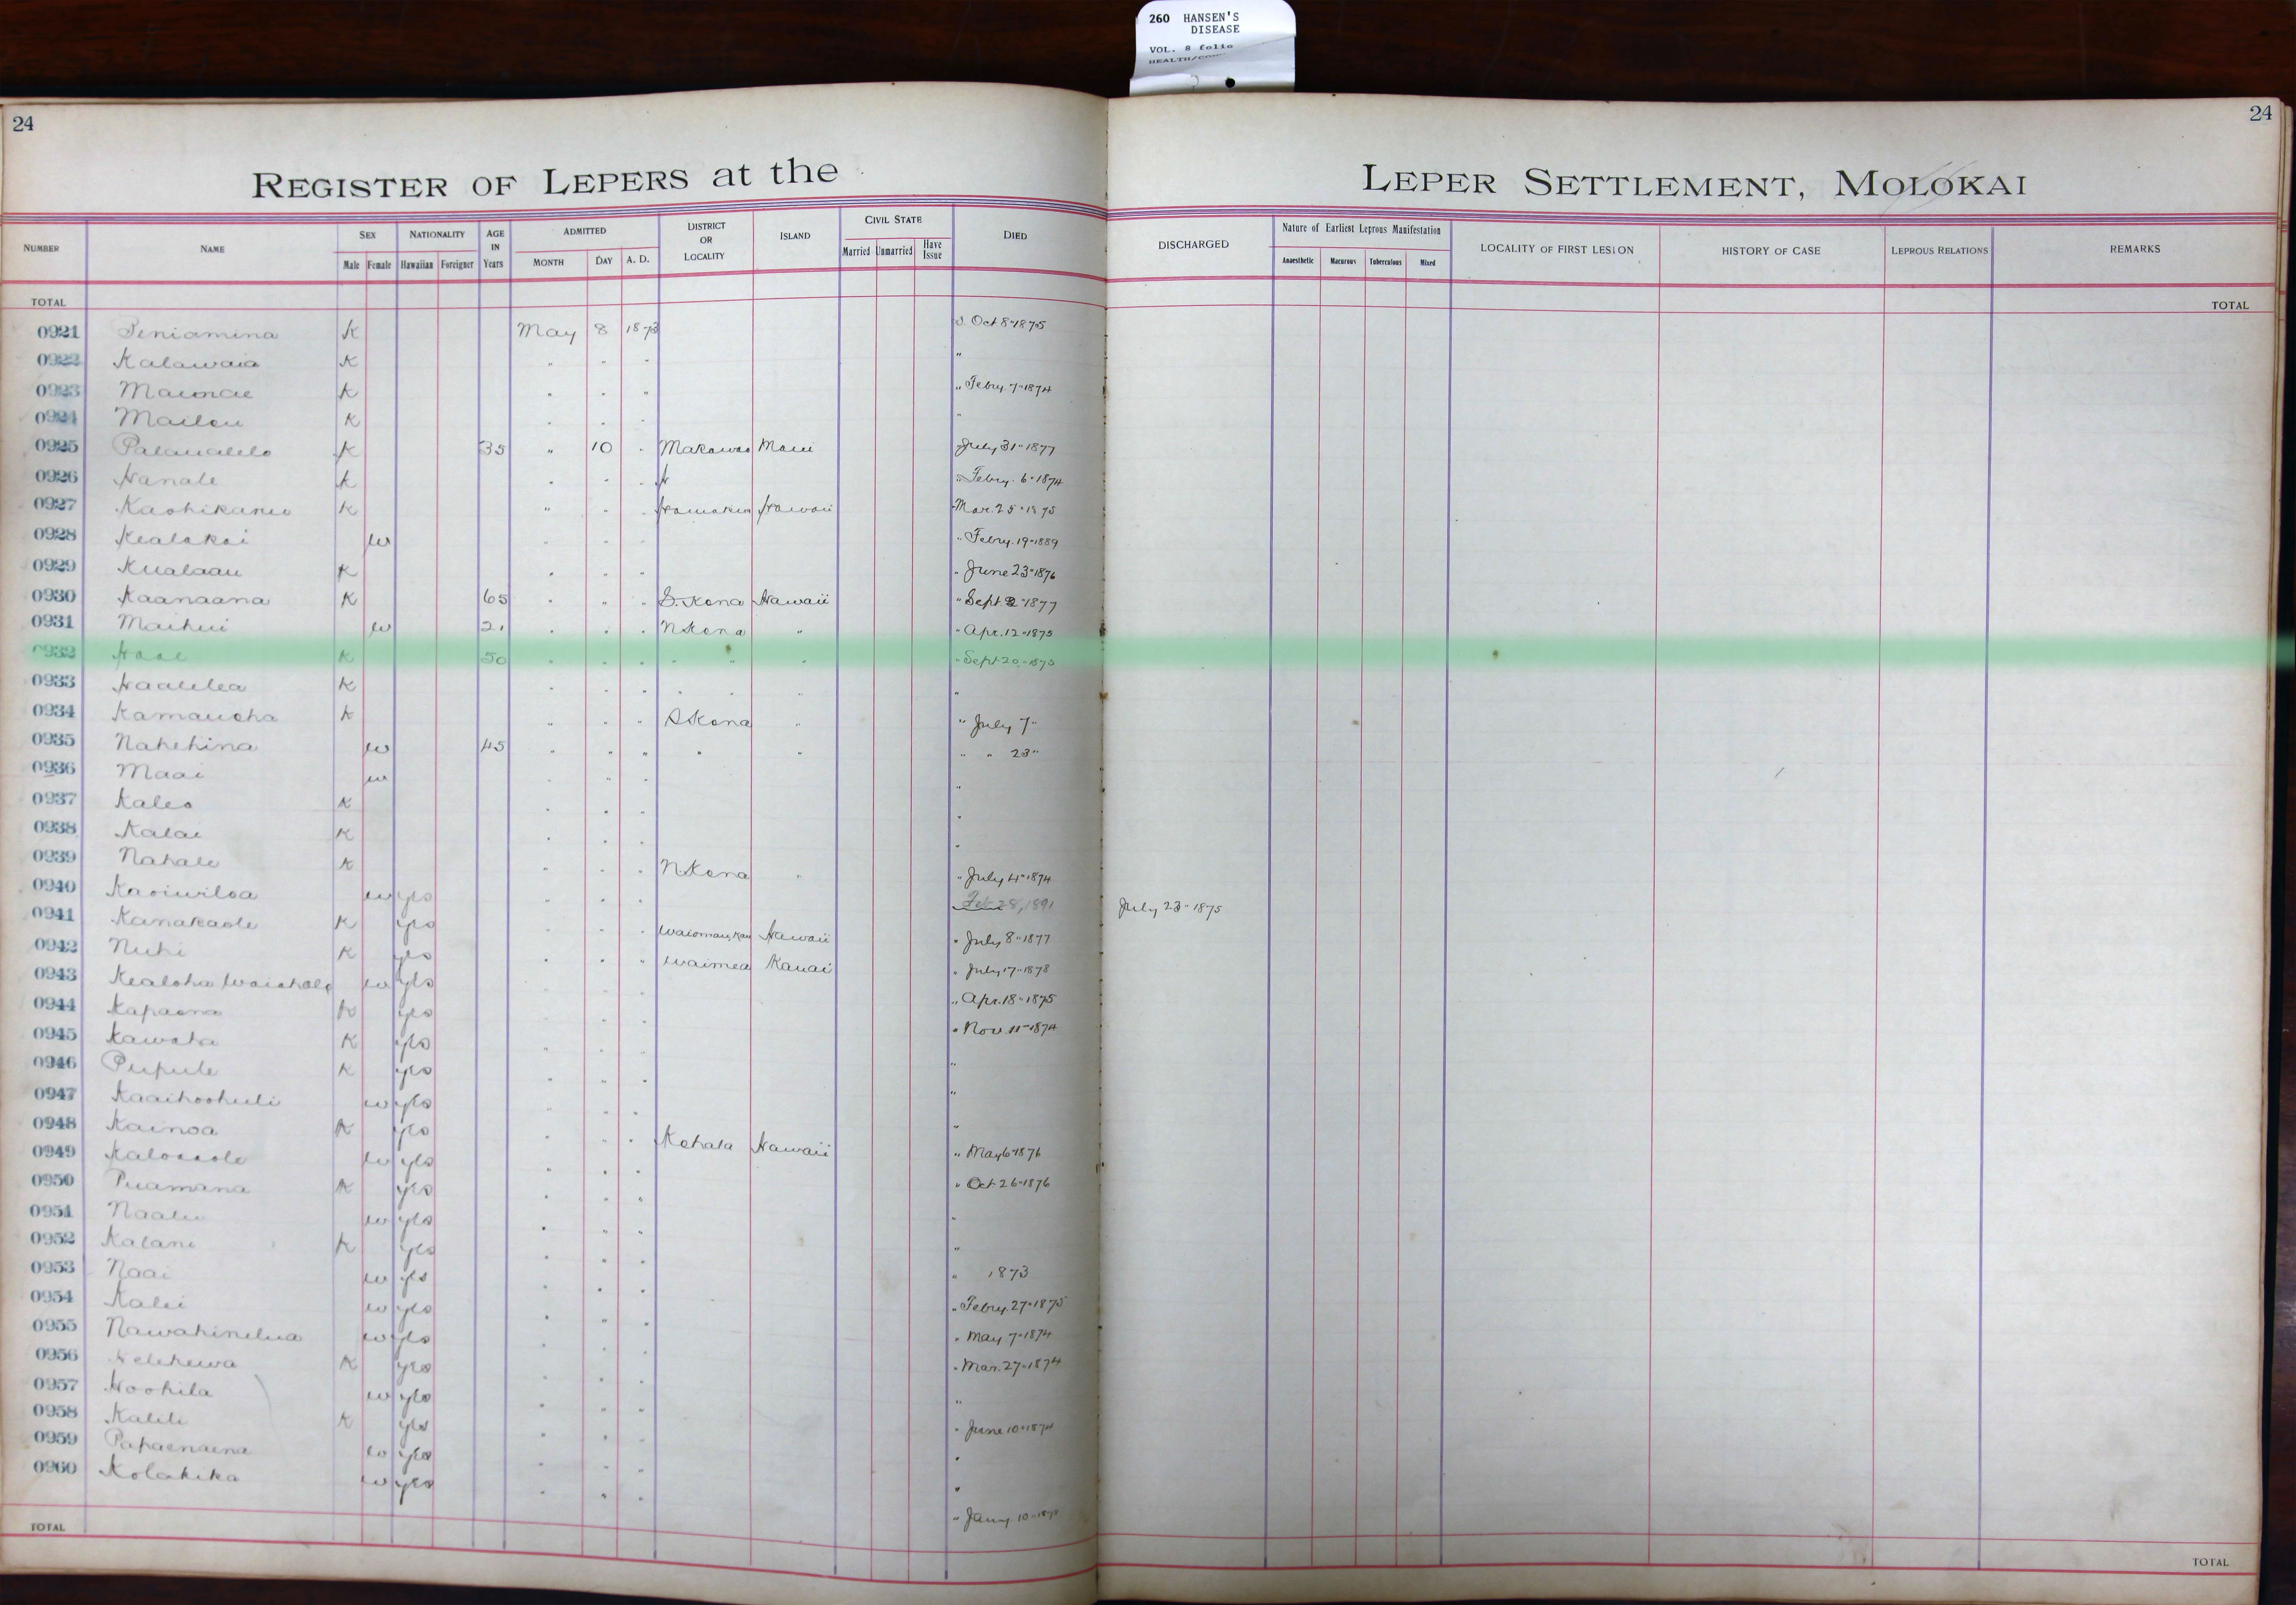 260 HANSEN'S
DISEASE
VOL. 8 folio
24
24
REGISTER OF LEPERS at the LEPER SETTLEMENT, MOLOKAI
NUMBER NAME SEX Male Female NATIONALITY Hawaiian Foreigner AGE IN Years ADMITTED MONTH DAY A. D. DISTRICT OR LOCALITY ISLAND CIVIL STATE Married Unmarried Have Issue DIED DISCHARGED Nature of Earliest Leprous Manifestation Anaesthetic Macurous Tuberculous Mixed LOCALITY OF FIRST LESION HISTORY OF CASE LEPROUS RELATIONS REMARKS
TOTAL TOTAL
0921 Peniamina K May 8 1873 Oct 8 " 1875
0922 Kalawaia K " " " "
0923 K " " " " Febry. 7 " 1874
0924 K " " " "
0925 K 35 " 10 " Makawao Maui July 31 " 1877
0926 Hanale K " " " Febry. 6 " 1874
0927 Kaohikanui K " " " Hawaii Mar. 25 " 1875
0928 Kealakai w " " " " Febry. 19 " 1889
0929 Kualaau K " " " " June 23 " 1876
0930 Kaanaana K 65 " " " S. Kona Hawaii " Sept 2 " 1877
0931 Maihui w 21 " " " N Kona " " Apr. 12 " 1875
0932 K 50 " " " " " " " Sept 20 " 1875
0933 Haalelea K " " " " " " "
0934 Kamauoha K " " " S Kona " " July 7 "
0935 Nahehina w 45 " " " " " " " 23 "
0936 Maai w " " " "
0937 Kaleo K " " " "
0938 Kalai K " " " "
0939 Nahale K " " " N Kona " " July 4 " 1874
0940 Kaoiwiloa w yes " " " Feb 28, 1891 July 23 " 1875
0941 Kanakaole K yes " " " Hawaii " July 8 " 1877
0942 Nuhi K yes " " " Waimea Kauai " July 17 " 1878
0943 Kealoha w yes " " " " Apr. 18 " 1875
0944 Kapaona K yes " " " " Nov. 11 " 1874
0945 Kawaha K yes " " " "
0946 Pupule K yes " " " "
0947 Kaaihoohuli w yes " " " "
0948 Kainoa K yes " " " Kohala Hawaii " May 6 " 1876
0949 w yes " " " " Oct 26 " 1876
0950 Puamana K yes " " " "
0951 Naalu w yes " " " "
0952 Kalani K yes " " " " 1873
0953 Naai w yes " " " " Febry. 27 " 1875
0954 Kalei w yes " " " " May 7 " 1874
0955 Nawahinelua w yes " " " " Mar. 27 " 1874
0956 K yes " " " "
0957 Hoohila w yes " " " " June 10 " 1874
0958 Kalili K yes " " " "
0959 Papaenaena w yes " " " "
0960 Kolakika w yes " " " " Jany. 10 "
TOTAL TOTAL